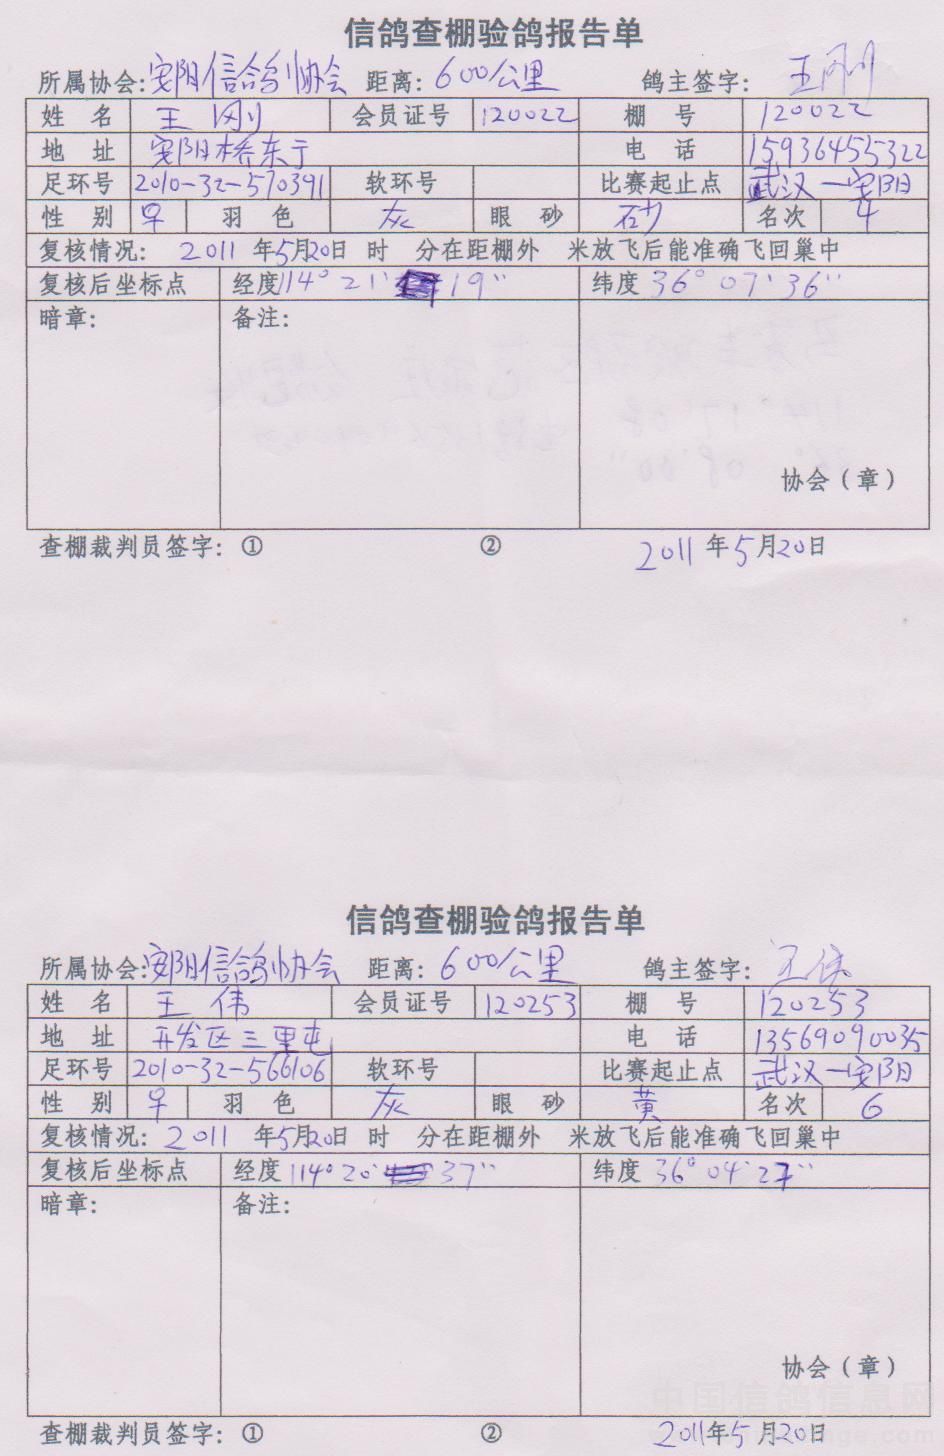 信鸽查棚验鸽报告单
所属协会:安阳信鸽协会 距离:600公里 鸽主签字:王刚
姓 名 王刚 会员证号 120022 棚 号 120022
地 址 安阳桥东于 电 话 15936455322
足环号 2010-32-570391 软环号 比赛起止点 武汉—安阳
性 别 羽 色 灰 眼 砂 砂 名次 4
复核情况: 2011 年5月20日 时 分在距棚外 米放飞后能准确飞回巢中
复核后坐标点 经度114°21'19" 纬度36°07'36"
暗章: 备注:
协会(章)
查棚裁判员签字: ① ② 2011年5月20日
信鸽查棚验鸽报告单
所属协会:安阳信鸽协会 距离:600公里 鸽主签字:王伟
姓 名 王伟 会员证号 120253 棚 号 120253
地 址 开发区三里屯 电 话 13569090035
足环号 2010-32-566106 软环号 比赛起止点 武汉—安阳
性 别 羽 色 灰 眼 砂 黄 名次 6
复核情况: 2011 年5月20日 时 分在距棚外 米放飞后能准确飞回巢中
复核后坐标点 经度114°20'37" 纬度36°04'27"
暗章: 备注:
协会(章)
中国信鸽信息网
查棚裁判员签字: ① ② 2011年5月20日